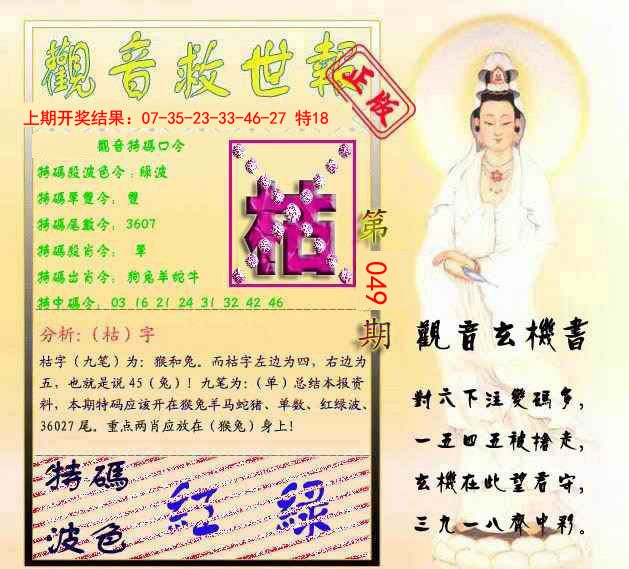 觀音救世報
正版
上期开奖结果：07-35-23-33-46-27 特18
觀音特碼口令
特碼段波色令：綠波
特碼單雙令： 雙
特碼尾數令： 3607
特碼段肖令： 單
特碼出肖令： 狗兔羊蛇牛
特中碼令： 03 16 21 24 31 32 42 46
枯
第
049
期
分析:（枯）字
枯字（九笔）为：猴和兔。而枯字左边为四，右边为
五，也就是说 45（兔）！九笔为：（单）总结本报资
料，本期特码应该开在猴兔羊马蛇猪、单数、红绿波、
36027 尾。重点两肖应放在（猴兔）身上！
特碼
波色
紅 綠
觀音玄機書
對六下注雙碼多，
一五四五被搶走，
玄機在此望看守，
三九一八齊中彩。